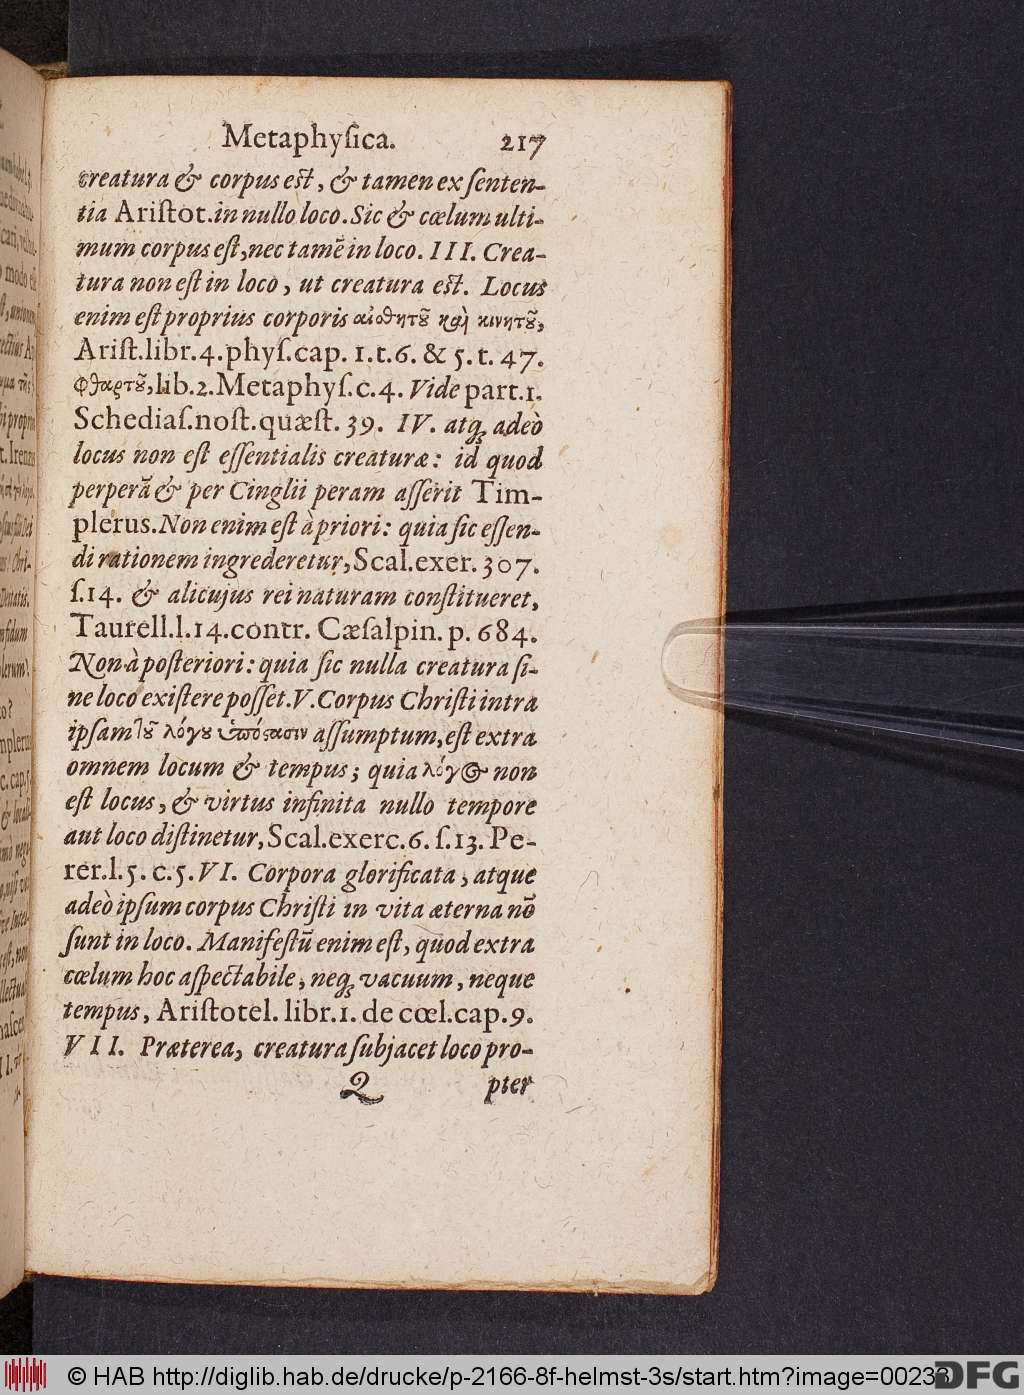 Metaphyſica. 217
creatura & corpus eſt, & tamen ex ſenten-
tia Ariſtot. in nullo loco. Sic & cœlum ulti-
mum corpus eſt, nec tamē in loco. III. Crea-
tura non eſt in loco, ut creatura eſt. Locus
enim eſt proprius corporis αἰσθητοῦ καὶ κινητοῦ,
Ariſt. libr. 4. phyſ. cap. 1. t. 6. & 5. t. 47.
φθαρτοῦ, lib. 2. Metaphyſ. c. 4. Vide part. 1.
Schediaſ. noſt. quæſt. 39. IV. atq; adeò
locus non eſt eſſentialis creaturæ: id quod
perperā & per Cinglii peram aſſerit Tim-
plerus. Non enim eſt à priori: quia ſic eſſen-
di rationem ingrederetur, Scal. exer. 307.
ſ. 14. & alicujus rei naturam conſtitueret,
Taurell. l. 14. contr. Cæſalpin. p. 684.
Non à poſteriori: quia ſic nulla creatura ſi-
ne loco exiſtere poſſet. V. Corpus Chriſti intra
ipſam τοῦ λόγου ὑπόϛασιν aſſumptum, eſt extra
omnem locum & tempus; quia λόγος non
eſt locus, & virtus infinita nullo tempore
aut loco diſtinetur, Scal. exerc. 6. ſ. 13. Pe-
rer. l. 5. c. 5. VI. Corpora glorificata, atque
adeò ipſum corpus Chriſti in vita æterna nō
ſunt in loco. Manifeſtū enim eſt, quod extra
cœlum hoc aſpectabile, neq; vacuum, neque
tempus, Ariſtotel. libr. 1. de cœl. cap. 9.
VII. Præterea, creatura ſubjacet loco pro-
Q pter
© HAB http://diglib.hab.de/drucke/p-2166-8f-helmst-3s/start.htm?image=00233
DFG